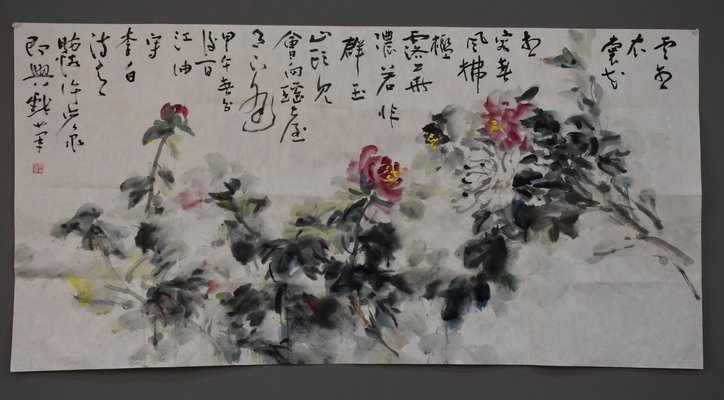 云想
衣
裳花
想
容春
風拂
檻
露華
濃若非
群玉
山頭見
會向瑤台
月下逢
甲午春分
江油
李白
詩意
即興戲筆